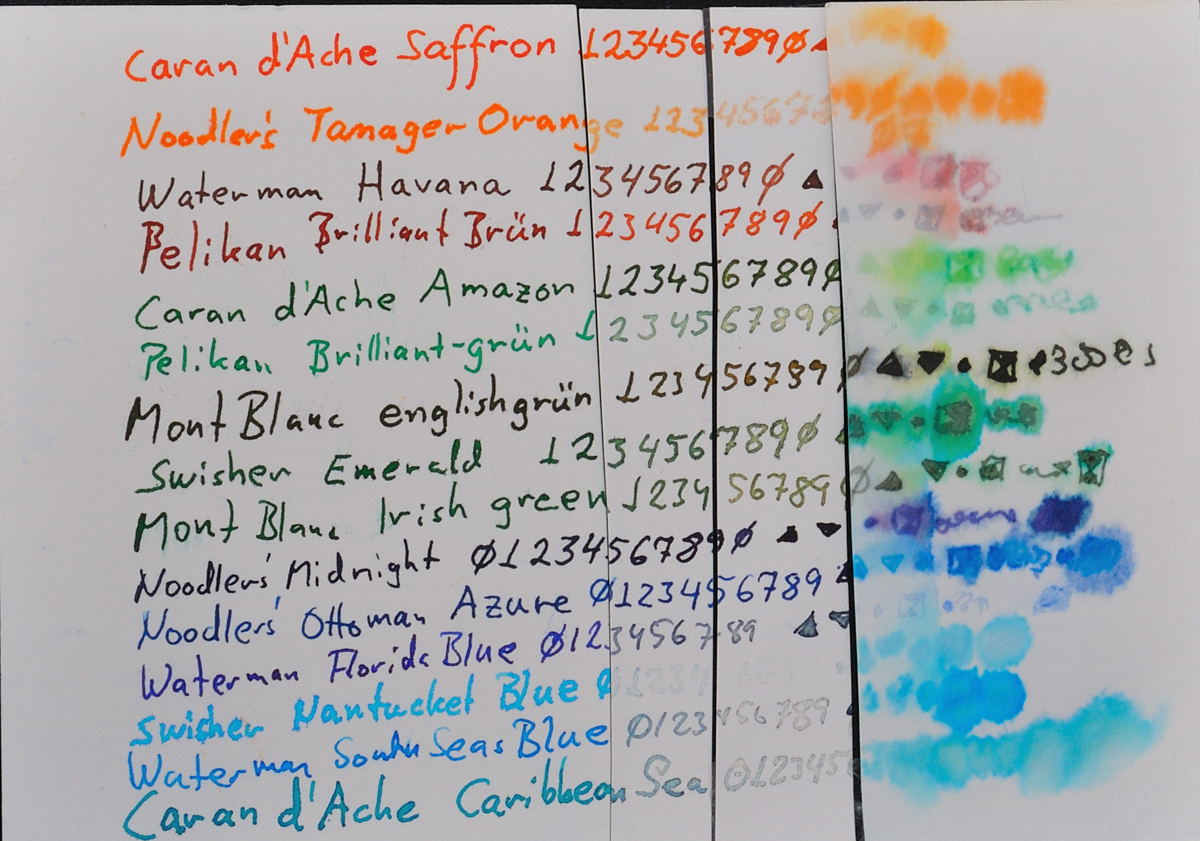 Caran d'Ache Saffron 123456789Ø
Noodler's Tanager Orange 12345678
Waterman Havana 123456789Ø
Pelikan Brilliant Brün 123456789Ø
Caran d'Ache Amazon 123456789Ø
Pelikan Brilliant-grün 123456789Ø
Mont Blanc englishgrün 123456789Ø
Swisher Emerald 123456789Ø
Mont Blanc Irish green 123456789Ø
Noodler's Midnight Ø123456789Ø
Noodler's Ottoman Azure Ø123456789
Waterman Florida Blue Ø123456789
Swisher Nantucket Blue Ø1234
Waterman South Seas Blue Ø123456789
Caran d'Ache Caribbean Sea Ø12345